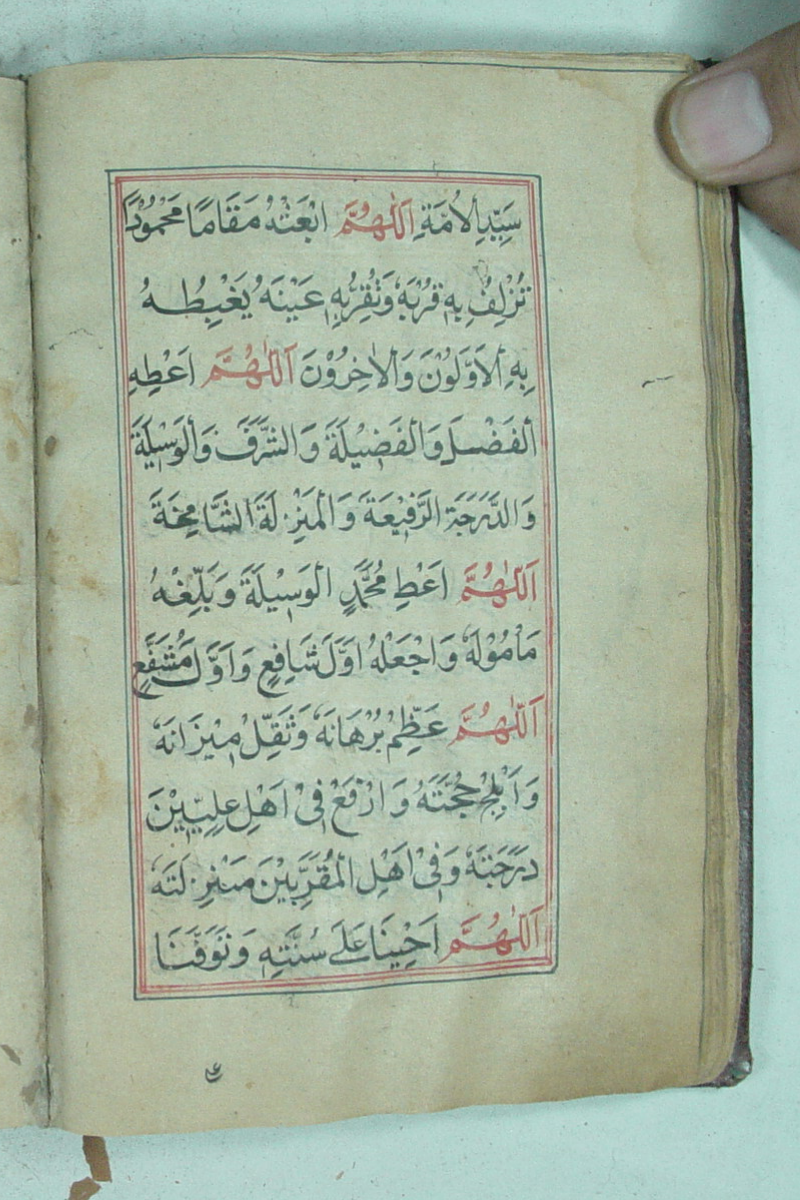 سَيِّدِ الْاُمَّةِ اَللّٰهُمَّ ابْعَثْهُ مَقَامًا مَحْمُوْدًا
تُزْلِفُ بِهٖ قُرْبَهٗ وَتُقِرُّ بِهٖ عَيْنَهٗ يَغْبِطُهُ
بِهِ الْاَوَّلُوْنَ وَالْاٰخِرُوْنَ اَللّٰهُمَّ اَعْطِهِ
الْفَضْلَ وَالْفَضِيْلَةَ وَالشَّرَفَ وَالْوَسِيْلَةَ
وَالدَّرَجَةَ الرَّفِيْعَةَ وَالْمَنْزِلَةَ الشَّامِخَةَ
اَللّٰهُمَّ اَعْطِ مُحَمَّدٍ الْوَسِيْلَةَ وَبَلِّغْهُ
مَاْمُوْلَهٗ وَاجْعَلْهُ اَوَّلَ شَافِعٍ وَاَوَّلَ مُشَفَّعٍ
اَللّٰهُمَّ عَظِّمْ بُرْهَانَهٗ وَثَقِّلْ مِيْزَانَهٗ
وَاَبْلِجْ حُجَّتَهٗ وَارْفَعْ فِىْ اَهْلِ عِلِّيِّيْنَ
دَرَجَتَهٗ وَفِىْ اَهْلِ الْمُقَرَّبِيْنَ مَنْزِلَتَهٗ
اَللّٰهُمَّ اَحْيِنَا عَلٰى سُنَّتِهٖ وَتَوَفَّنَا